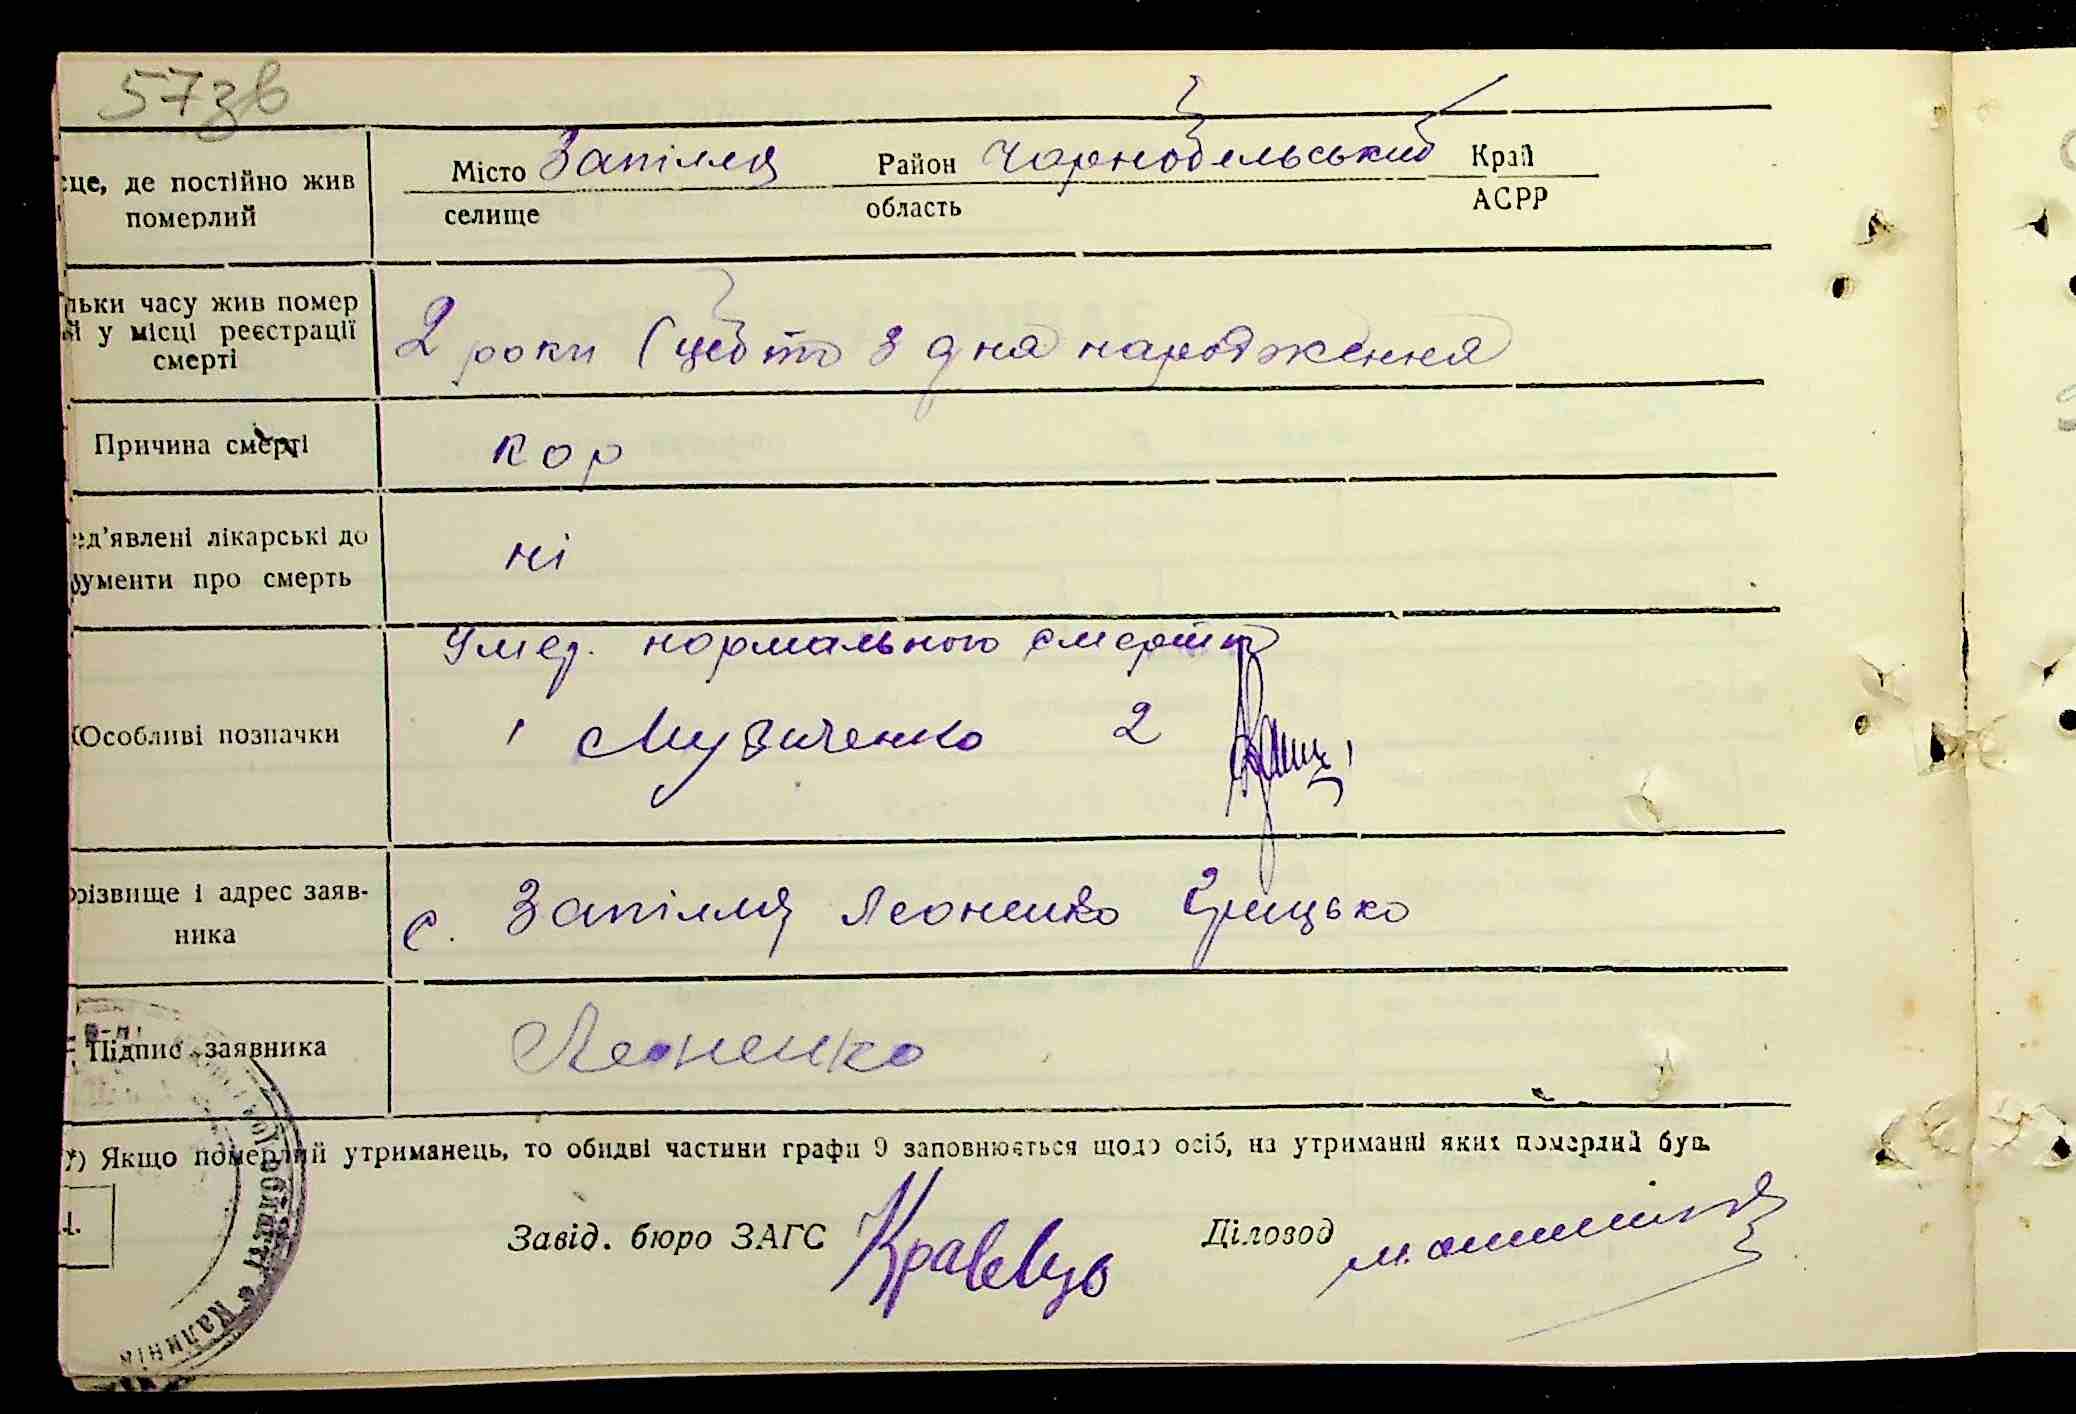 57зв
це, де постійно жив
померлий
Місто Запілля Район Чорнобельський Край
селище область АСРР
льки часу жив помер
й у місці реєстрації
смерті
2 роки (цебто з дня народження
Причина смерті
кор
ед'явлені лікарські до
ументи про смерть
ні
Особливі позначки
нормального смерти
1 Музиченко 2
різвище і адрес заяв-
ника
с. Запілля Леоненко Грицько
Підпис заявника
Леоненко
) Якщо померлий утриманець, то обидві частини графи 9 заповнюється щодо осіб, на утриманні яких померлий був.
Завід. бюро ЗАГС Кравець Діловод
області с Калинів